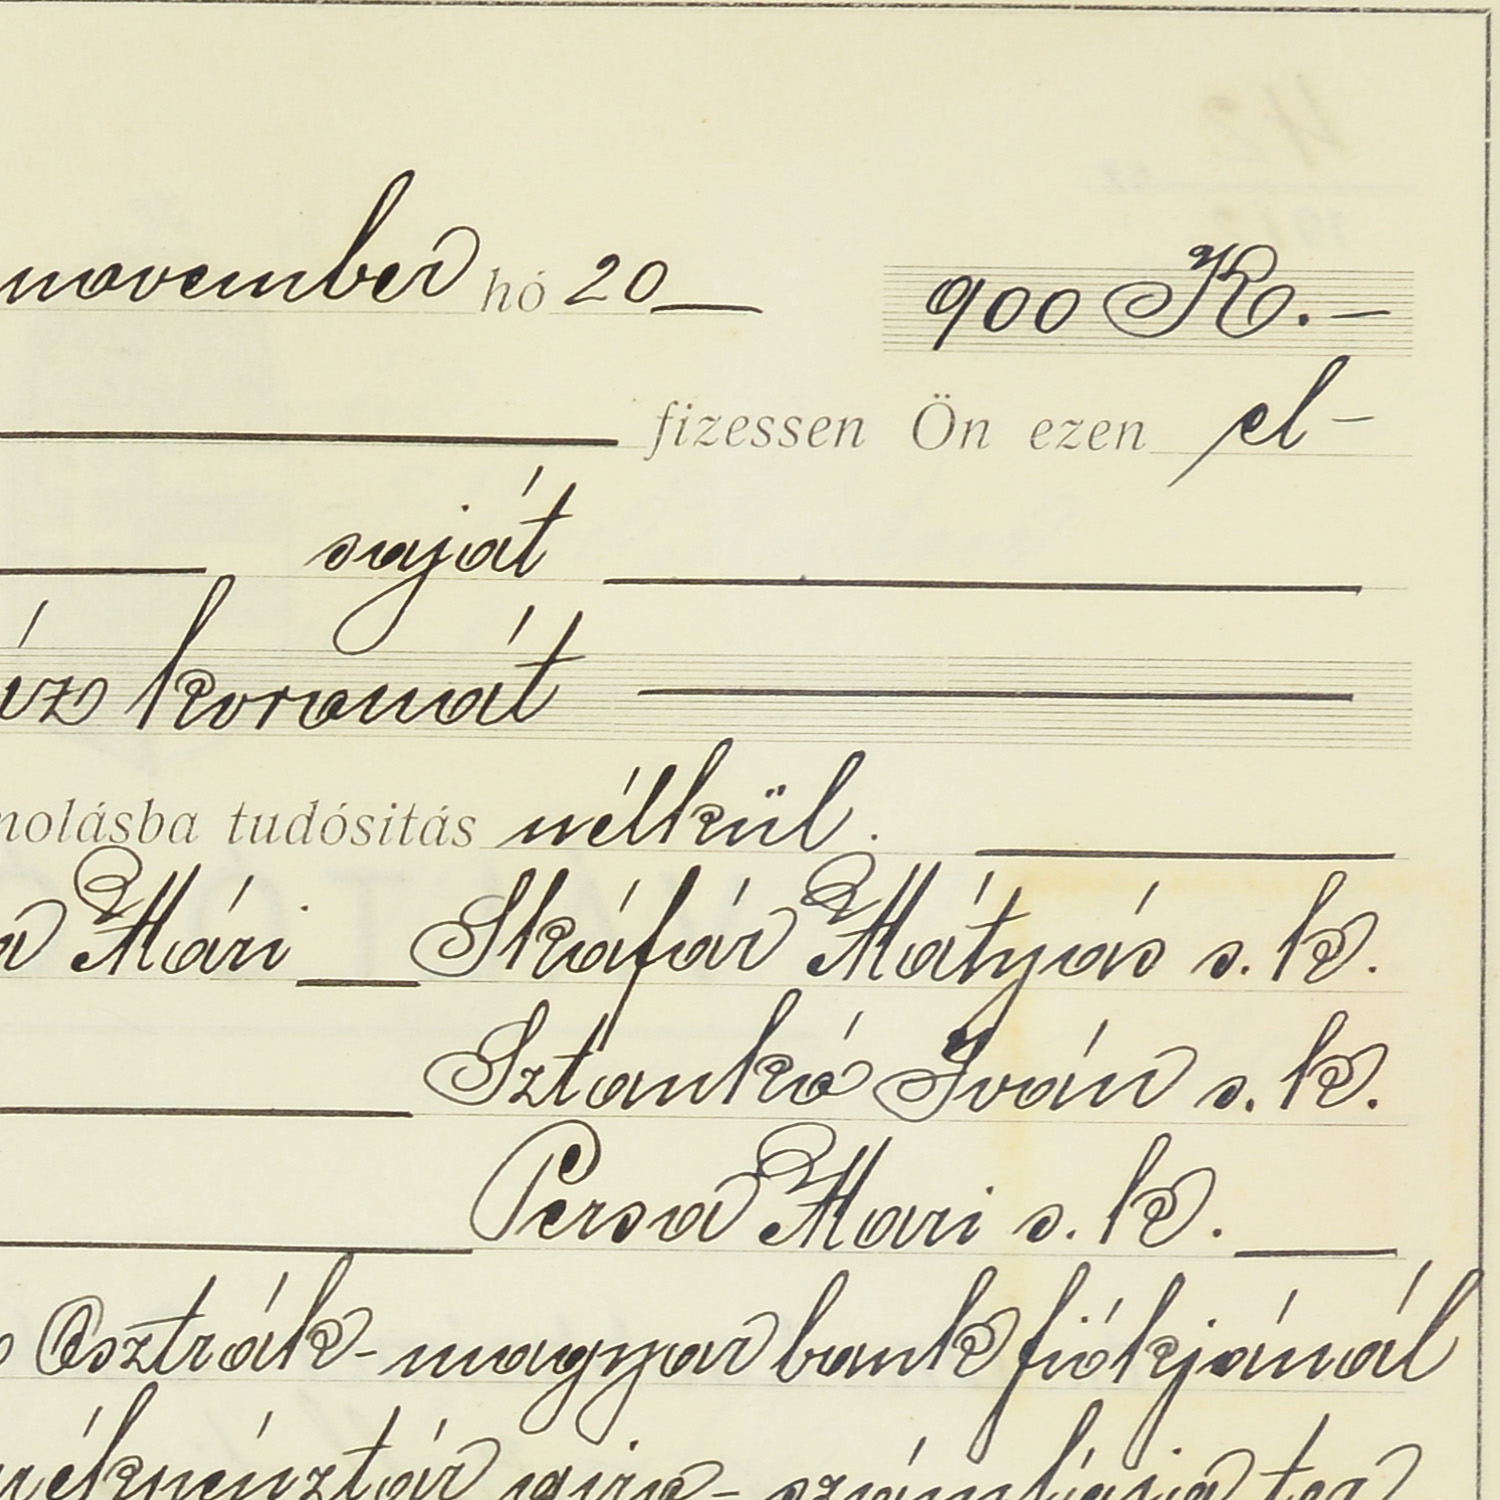 november hó 20
900 K.—
fizessen Ön ezen el-
saját
koronát
tudósitás nélkül.
Mári Skáfár Mátyás s. k.
Sztankó Iván s. k.
Persa Mari s. k.
Osztrák-magyar bank fiókjánál
giro-